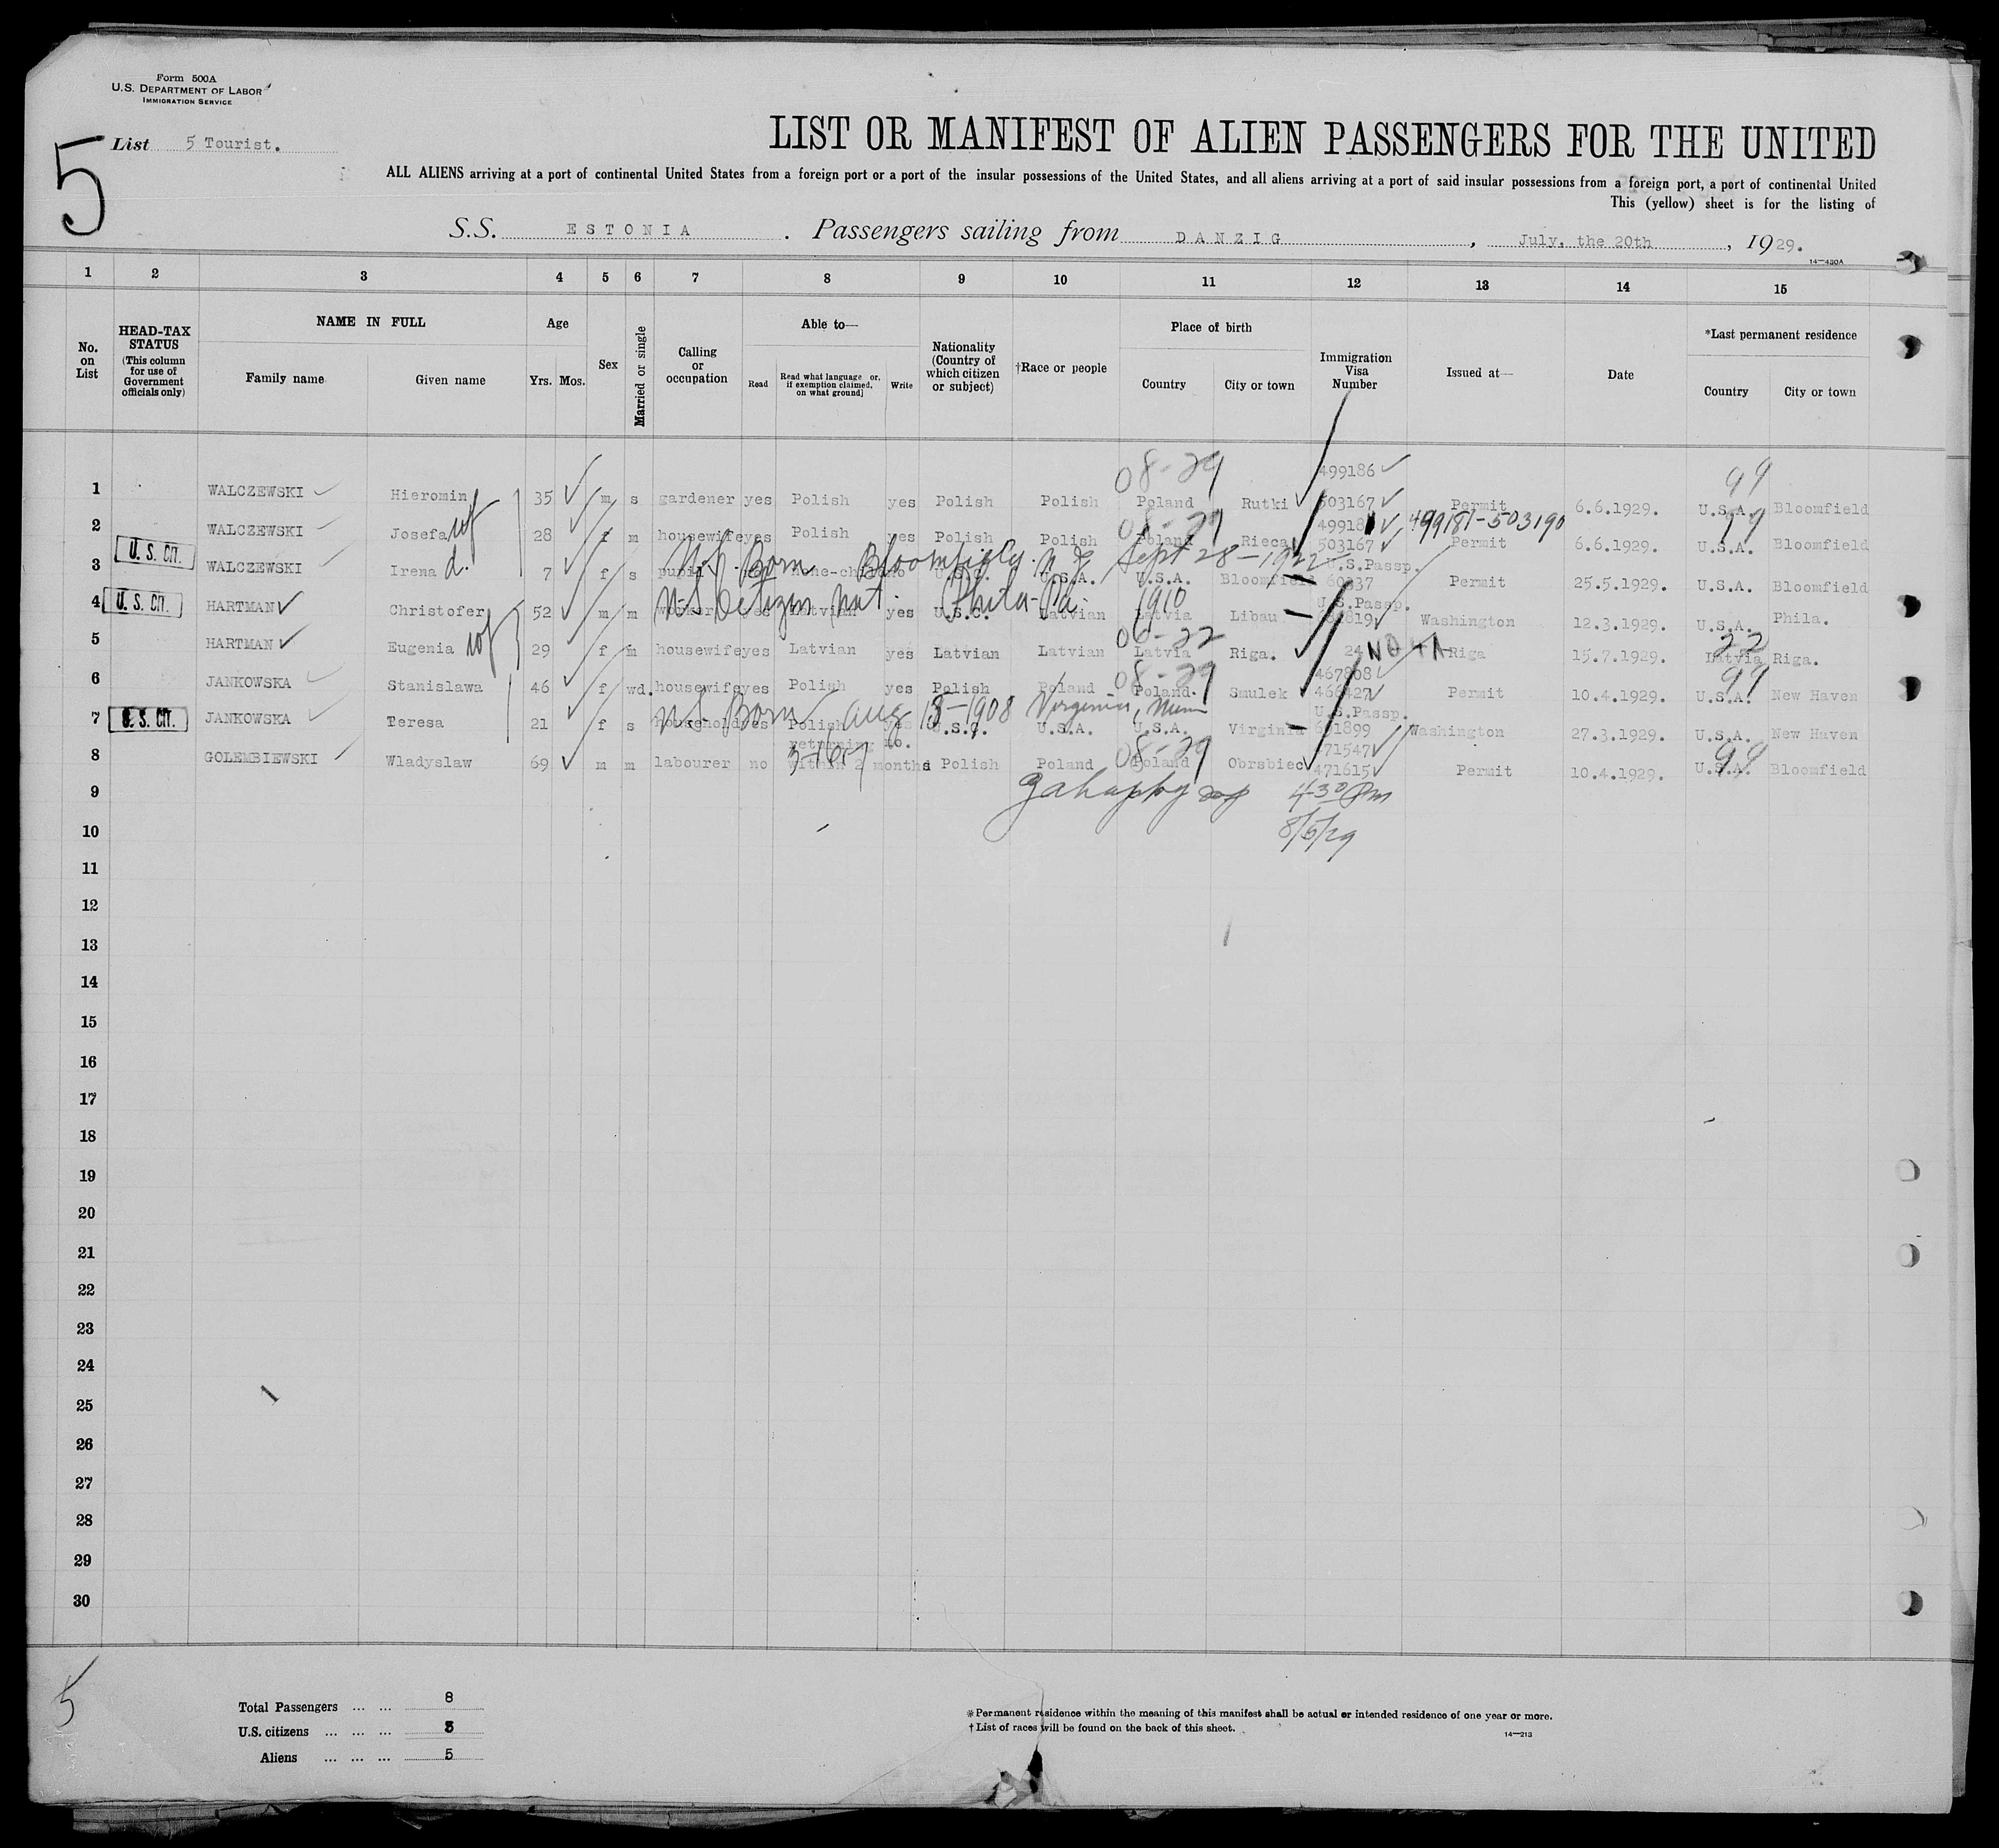 Form 500A
U.S. DEPARTMENT OF LABOR
IMMIGRATION SERVICE
5
List 5 Tourist.
LIST OR MANIFEST OF ALIEN PASSENGERS FOR THE UNITED
ALL ALIENS arriving at a port of continental United States from a foreign port or a port of the insular possessions of the United States, and all aliens arriving at a port of said insular possessions from a foreign port, a port of continental United
This (yellow) sheet is for the listing of
S.S. ESTONIA . Passengers sailing from DANZIG , July, the 20th , 1929.
14—430A
1 2 3 4 5 6 7 8 9 10 11 12 13 14 15
No. on List
HEAD-TAX STATUS (This column for use of Government officials only)
NAME IN FULL
Family name Given name
Age
Yrs. Mos.
Sex
Married or single
Calling or occupation
Able to—
Read Read what language or, if exemption claimed, on what ground] Write
Nationality (Country of which citizen or subject)
†Race or people
Place of birth
Country City or town
Immigration Visa Number
Issued at—
Date
*Last permanent residence
Country City or town
08-29 499186 ✓ 99
1 WALCZEWSKI Hieromin 35 m s gardener yes Polish yes Polish Polish Poland Rutki 503167 ✓ Permit 6.6.1929. U.S.A. Bloomfield
08-29 499181-503190 99
2 WALCZEWSKI Josefa wf 28 f m housewife yes Polish yes Polish Polish Poland Rieca 503167 ✓ Permit 6.6.1929. U.S.A. Bloomfield
U. S. CIT. U.S. Born Bloomfield, N.J. Sept 28-1922 U.S.Passp.
3 WALCZEWSKI Irena d. 7 f s pupil no none-child no U.S.C. U.S.A. U.S.A. Bloomfield 60337 Permit 25.5.1929. U.S.A. Bloomfield
U. S. CIT. U.S. Citizen nat. Phila-Pa. 1910 U.S.Passp.
4 HARTMAN Christofer 52 m m worker yes Latvian yes U.S.C. Latvian Latvia Libau Washington 12.3.1929. U.S.A. Phila.
06-22 22
5 HARTMAN Eugenia wf 29 f m housewife yes Latvian yes Latvian Latvian Latvia Riga. 24 Riga 15.7.1929. Latvia Riga.
08-29 467808 99
6 JANKOWSKA Stanislawa 46 f wd. housewife yes Polish yes Polish Poland Poland. Smulek 466427 Permit 10.4.1929. U.S.A. New Haven
U. S. CIT. U.S. Born Aug 13-1908 Virginia, Minn U.S.Passp.
7 JANKOWSKA Teresa 21 f s household yes Polish yes U.S.C. U.S.A. U.S.A. Virginia 601899 Washington 27.3.1929. U.S.A. New Haven
returning no. 08-29 471547 99
8 GOLEMBIEWSKI Wladyslaw 69 m m labourer no within 2 months Polish Poland Poland Obrsbiec 471615 Permit 10.4.1929. U.S.A. Bloomfield
9 4 30 Pm
10 8/5/29
11
12
13
14
15
16
17
18
19
20
21
22
23
24
25
26
27
28
29
30
5
Total Passengers ... ... 8
U.S. citizens ... ... ... 3
Aliens ... ... ... 5
*Permanent residence within the meaning of this manifest shall be actual or intended residence of one year or more.
†List of races will be found on the back of this sheet.
14—213